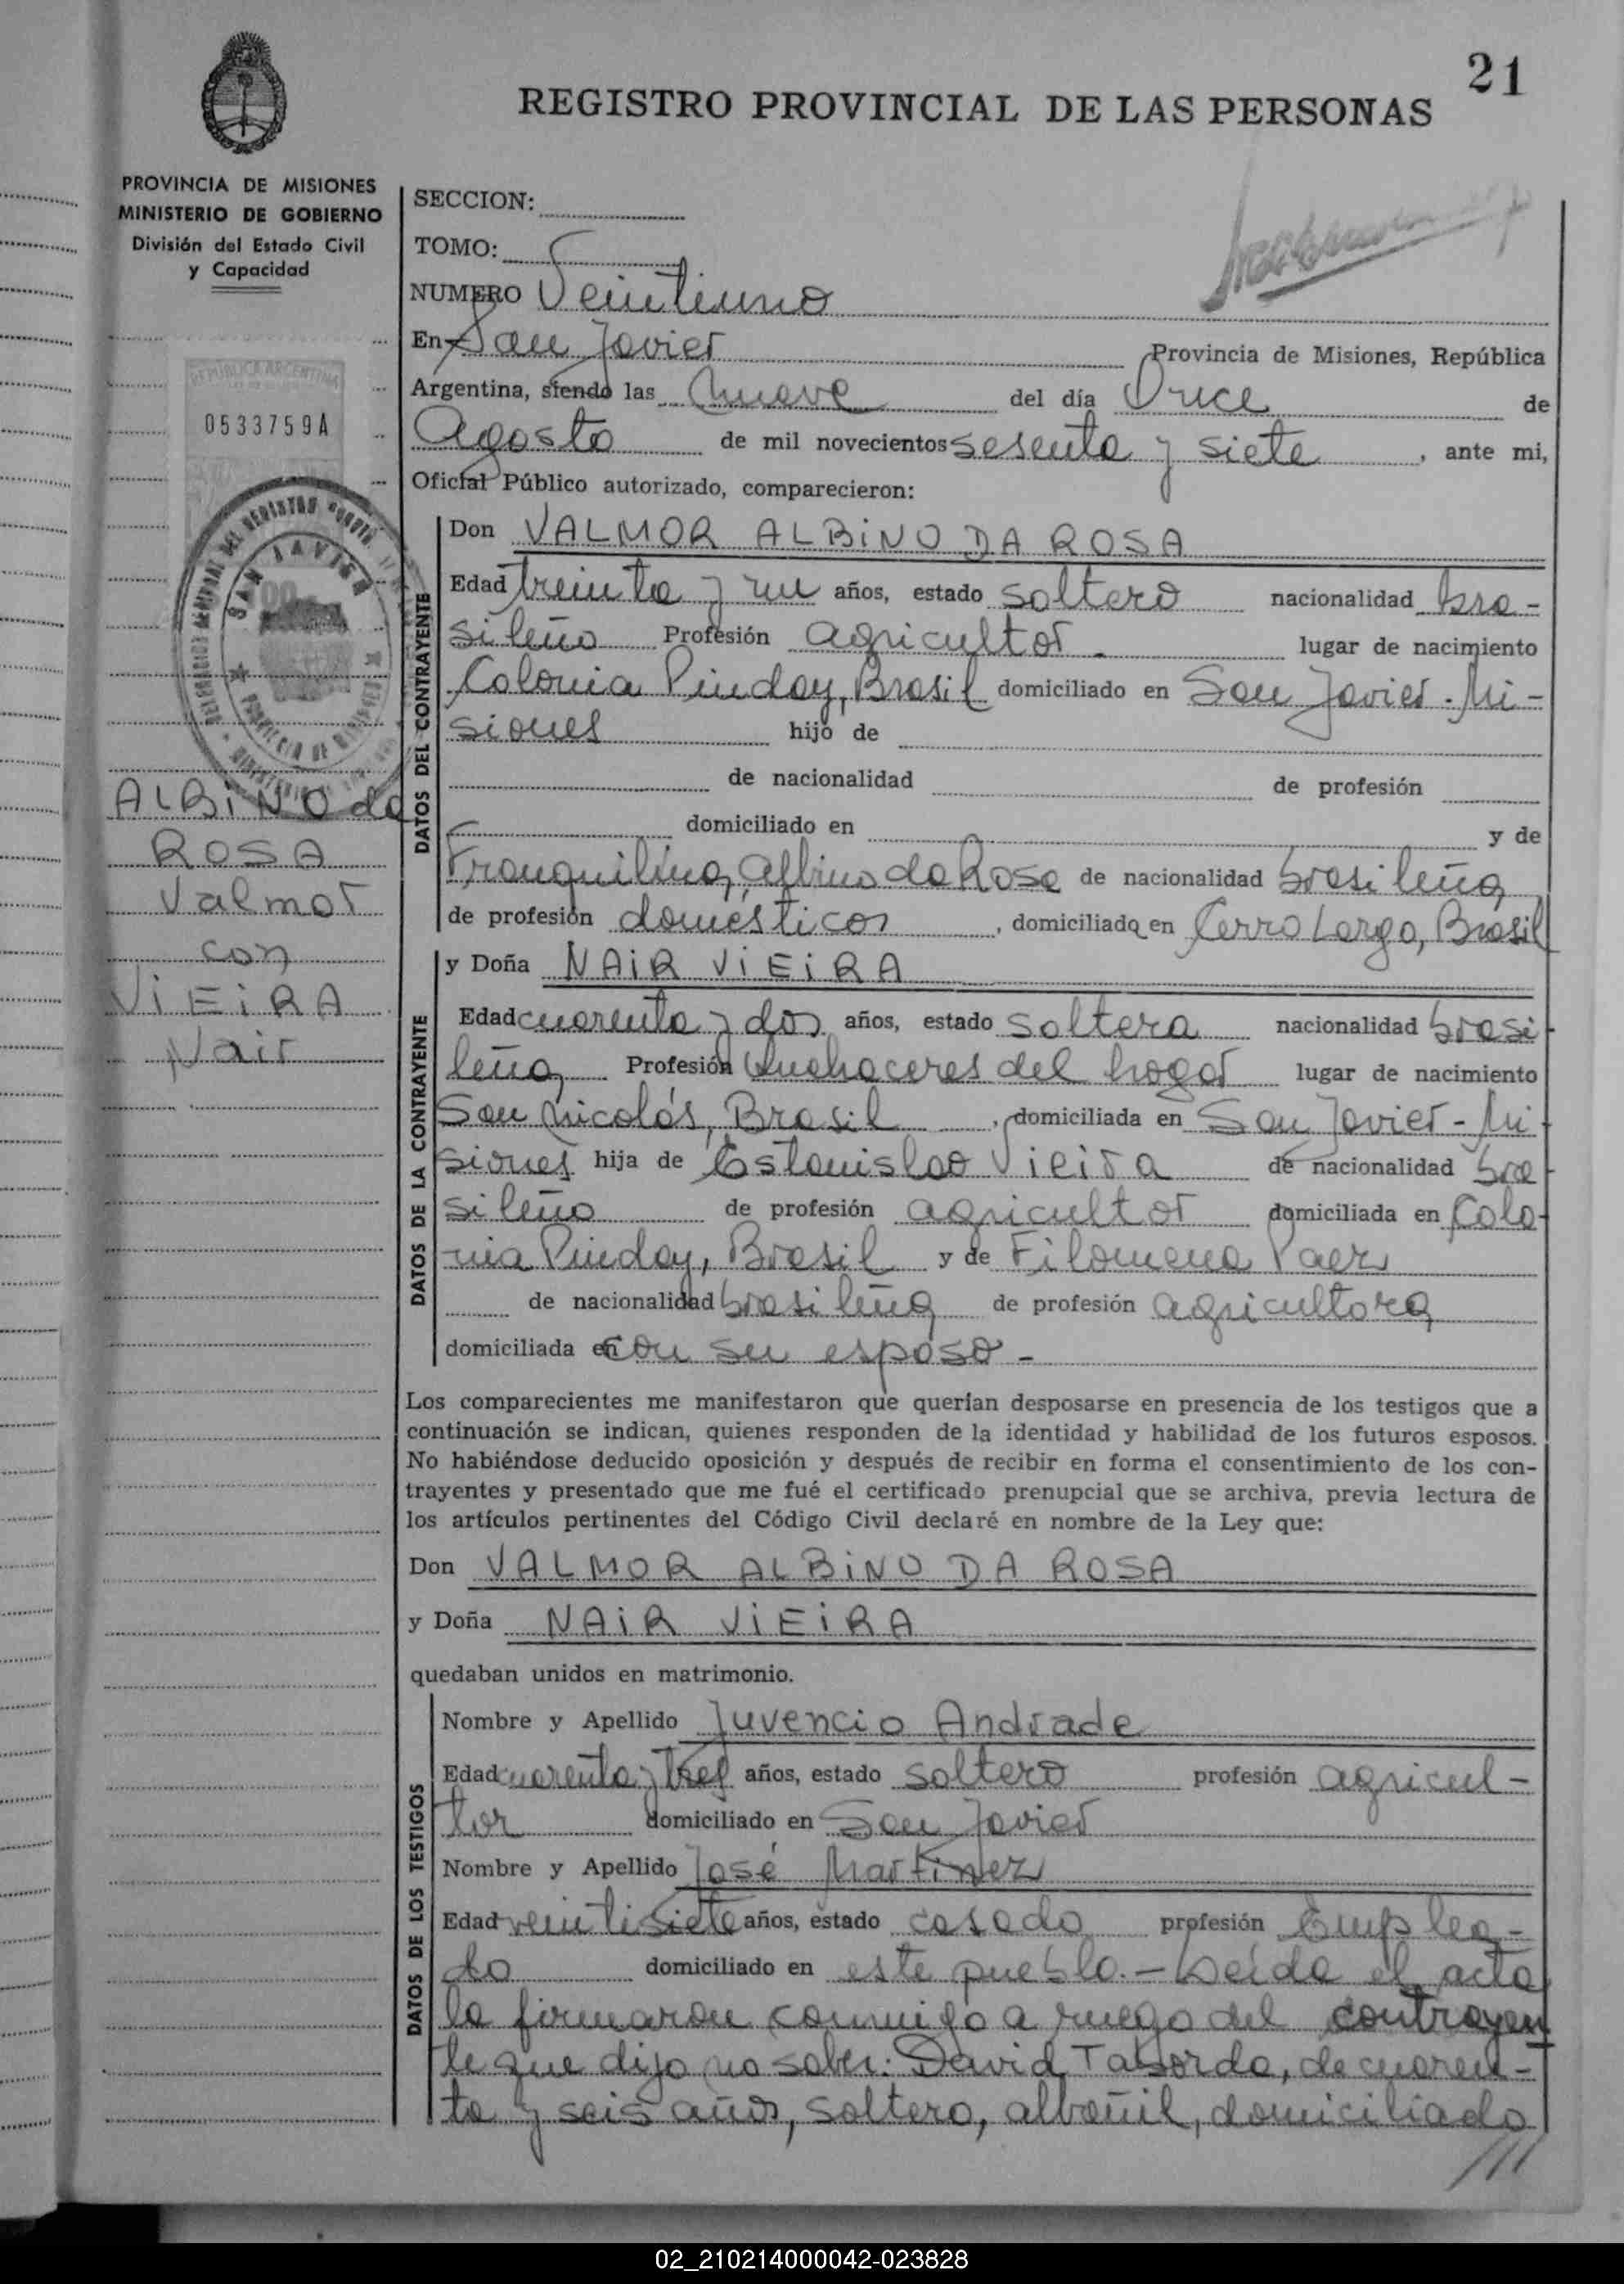 21
REGISTRO PROVINCIAL DE LAS PERSONAS
PROVINCIA DE MISIONES
MINISTERIO DE GOBIERNO
División del Estado Civil
y Capacidad
REPUBLICA ARGENTINA
0533759A
SAN JAVIER
ALBINO da
ROSA
Valmor
con
VIEIRA
Nair
SECCION:
TOMO:
NUMERO Veintiuno
En San Javier Provincia de Misiones, República
Argentina, siendo las nueve del día Once de
Agosto de mil novecientos sesenta y siete, ante mi,
Oficial Público autorizado, comparecieron:
DATOS DEL CONTRAYENTE
Don VALMOR ALBINO DA ROSA
Edad treinta y un años, estado soltero nacionalidad bra-
sileño Profesión agricultor lugar de nacimiento
Colonia Pinday, Brasil domiciliado en San Javier-Mi-
siones hijo de
de nacionalidad de profesión
domiciliado en y de
Franquilina Albino da Rosa de nacionalidad brasileña
de profesión domésticos, domiciliado en Cerro Largo, Brasil
DATOS DE LA CONTRAYENTE
y Doña NAIR VIEIRA
Edad cuarenta y dos años, estado soltera nacionalidad brasi
leña Profesión Quehaceres del hogar lugar de nacimiento
San Nicolás, Brasil, domiciliada en San Javier-Mi
siones hija de Estanislao Vieira de nacionalidad bra
sileño de profesión agricultor domiciliada en Colo-
nia Pinday, Brasil y de Filomena Paez
de nacionalidad brasileña de profesión agricultora
domiciliada en con su esposo-
Los comparecientes me manifestaron que querían desposarse en presencia de los testigos que a
continuación se indican, quienes responden de la identidad y habilidad de los futuros esposos.
No habiéndose deducido oposición y después de recibir en forma el consentimiento de los con-
trayentes y presentado que me fué el certificado prenupcial que se archiva, previa lectura de
los artículos pertinentes del Código Civil declaré en nombre de la Ley que:
Don VALMOR ALBINO DA ROSA
y Doña NAIR VIEIRA
quedaban unidos en matrimonio.
DATOS DE LOS TESTIGOS
Nombre y Apellido Juvencio Andrade
Edad cuarenta y tres años, estado soltero profesión agricul-
tor domiciliado en San Javier
Nombre y Apellido José Martinez
Edad veintisiete años, estado casado profesión Emplea-
do domiciliado en este pueblo.- Leída el acta
la firmaron conmigo a ruego del contrayen
te que dijo no saber: David Taborda, de cuaren-
ta y seis años, soltero, albañil, domiciliado
///
02_210214000042-023828